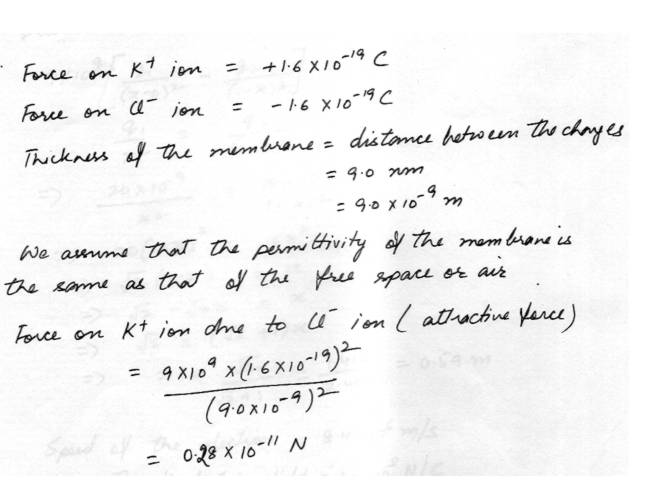 Force on K+ ion = +1.6 X10^-19 C
Force on Cl- ion = -1.6 X10^-19 C
Thickness of the membrane = distance between the charges
= 9.0 nm
= 9.0 x 10^-9 m
We assume that the permittivity of the membrane is
the same as that of the free space or air
Force on K+ ion due to Cl- ion (attractive force)
= 9 X10^9 x (1.6 X10^-19)^2
(9.0x10^-9)^2
= 0.28 X 10^-11 N